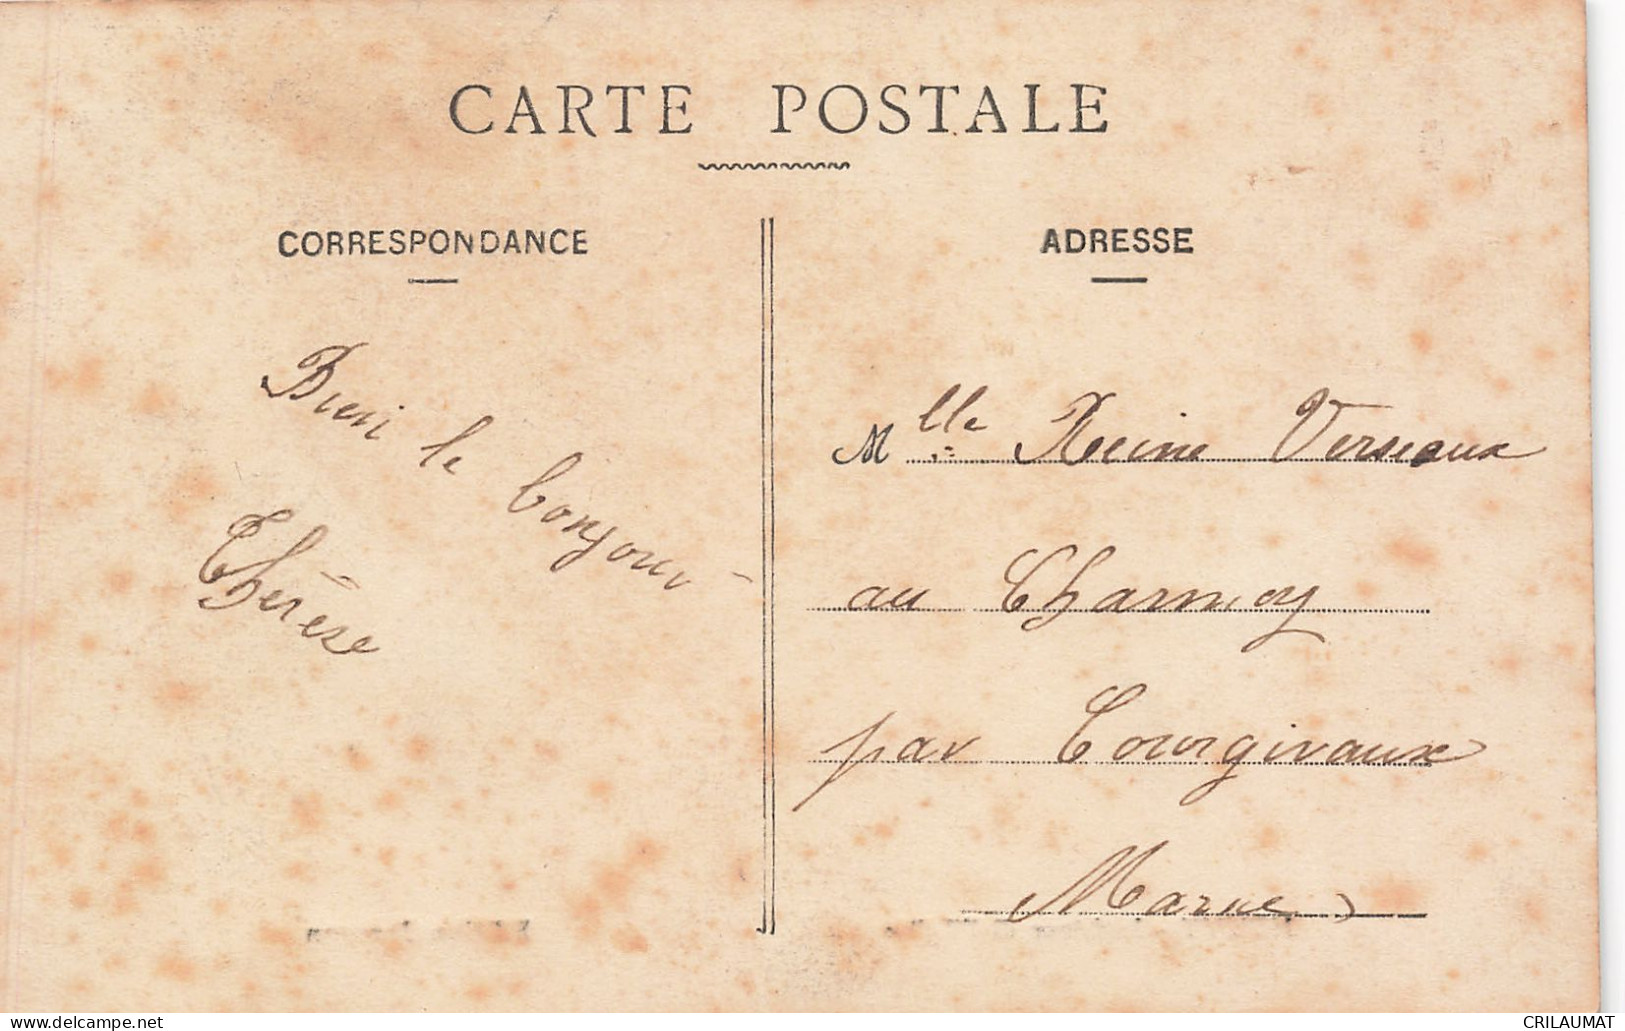 CARTE POSTALE
CORRESPONDANCE
Bien le bonjour
Thérèse
ADRESSE
Mlle Reine Verseaux
au Charmoy
par Courgivaux
Marne
delcampe.net
CRILAUMAT